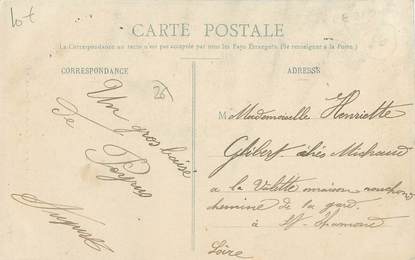 lot
CARTE POSTALE
(La Correspondance au recto n'est pas acceptée par tous les Pays Étrangers. (Se renseigner à la Poste.)
CORRESPONDANCE
ADRESSE
25
Un gros baisé
de
Auguste
M Mademoiselle Henriette
Glibert chés Michaud
a la Valette maison
chemine de la gare
à St. Chamond
Loire